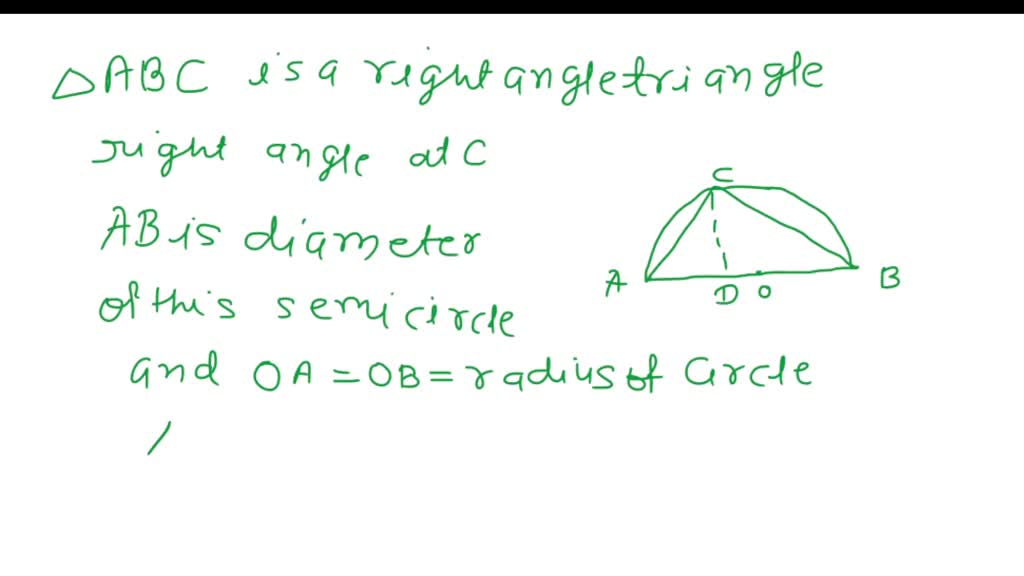 △ABC is a right angle triangle
right angle at C
AB is diameter
of this semicircle
and OA = OB = radius of circle
C
A D O B